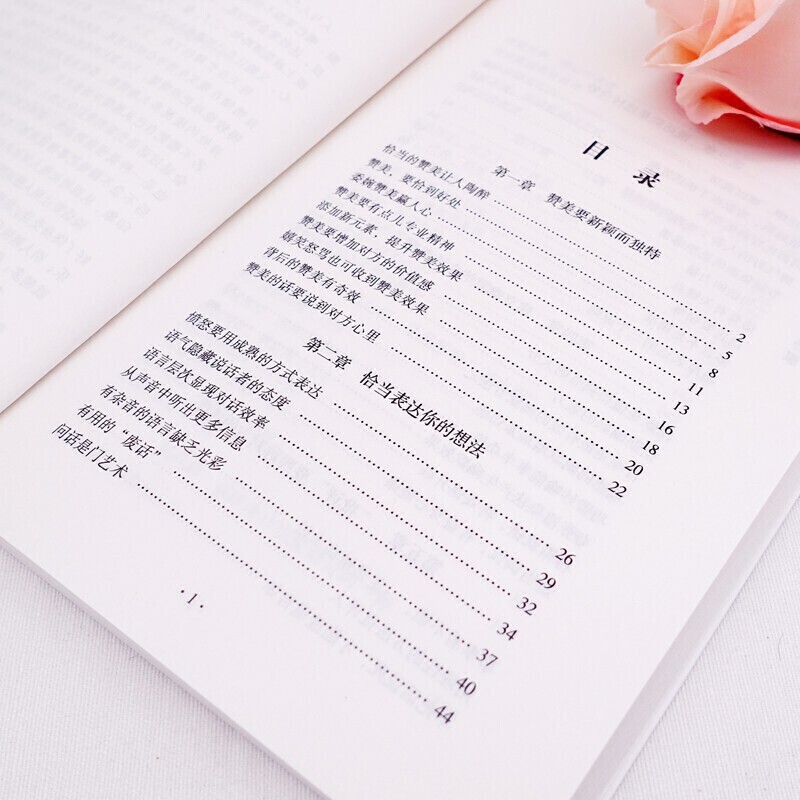 目 录
第一章 赞美要新颖而独特
恰当的赞美让人陶醉 …… 2
赞美，要恰到好处 …… 5
委婉赞美赢人心 …… 8
赞美要有点儿专业精神 …… 11
添加新元素，提升赞美效果 …… 13
赞美要增加对方的价值感 …… 16
嬉笑怒骂也可收到赞美效果 …… 18
背后的赞美有奇效 …… 20
赞美的话要说到对方心里 …… 22
第二章 恰当表达你的想法
愤怒要用成熟的方式表达 …… 26
语气隐藏说话者的态度 …… 29
语言层次显现对话效率 …… 32
从声音中听出更多信息 …… 34
有杂音的语言缺乏光彩 …… 37
有用的“废话” …… 40
问话是门艺术 …… 44
· 1 ·